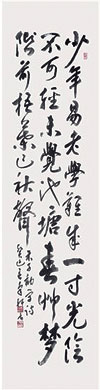 少年易老學難成一寸光陰
不可輕未覺池塘春艸夢
階前梧葉已秋聲
朱子勸學詩